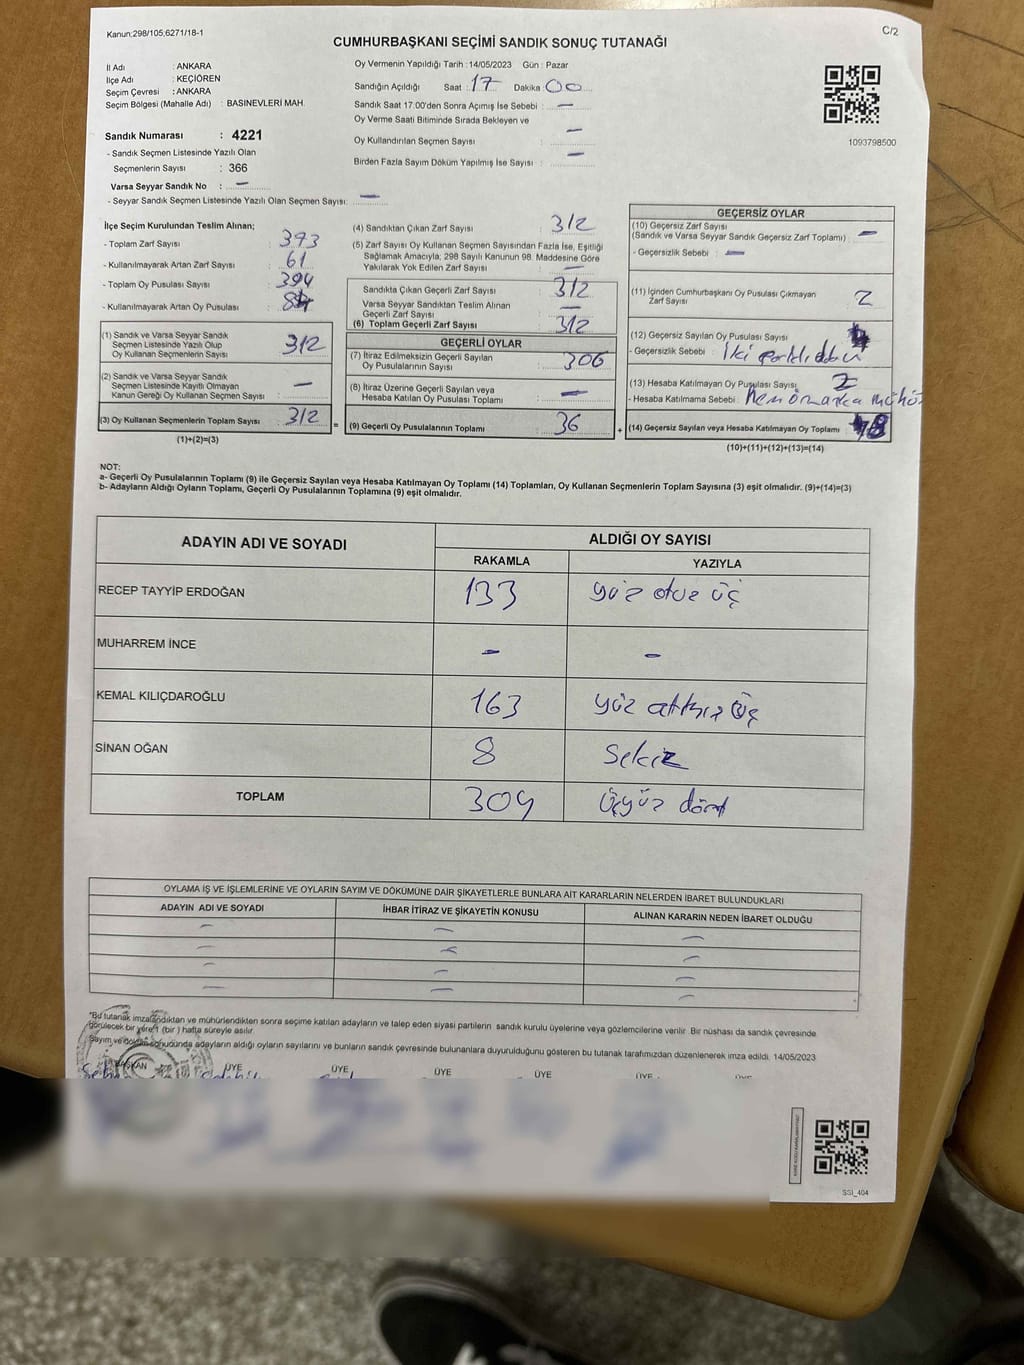 Kanun:298/105;6271/18-1
C/2
CUMHURBAŞKANI SEÇİMİ SANDIK SONUÇ TUTANAĞI
İl Adı : ANKARA
İlçe Adı : KEÇİÖREN
Seçim Çevresi : ANKARA
Seçim Bölgesi (Mahalle Adı) : BASINEVLERİ MAH.
Sandık Numarası : 4221
- Sandık Seçmen Listesinde Yazılı Olan
Seçmenlerin Sayısı : 366
Varsa Seyyar Sandık No : —
- Seyyar Sandık Seçmen Listesinde Yazılı Olan Seçmen Sayısı: —
Oy Vermenin Yapıldığı Tarih : 14/05/2023 Gün : Pazar
Sandığın Açıldığı Saat : 17 Dakika : 00
Sandık Saat 17:00'den Sonra Açılmış İse Sebebi : —
Oy Verme Saati Bitiminde Sırada Bekleyen ve
Oy Kullandırılan Seçmen Sayısı : —
Birden Fazla Sayım Döküm Yapılmış İse Sayısı : —
1093798500
İlçe Seçim Kurulundan Teslim Alınan;
- Toplam Zarf Sayısı : 373
- Kullanılmayarak Artan Zarf Sayısı : 61
- Toplam Oy Pusulası Sayısı : 394
- Kullanılmayarak Artan Oy Pusulası :
(1) Sandık ve Varsa Seyyar Sandık
Seçmen Listesinde Yazılı Olup
Oy Kullanan Seçmenlerin Sayısı : 312
(2) Sandık ve Varsa Seyyar Sandık
Seçmen Listesinde Kayıtlı Olmayan
Kanun Gereği Oy Kullanan Seçmen Sayısı : —
(3) Oy Kullanan Seçmenlerin Toplam Sayısı : 312 =
(1)+(2)=(3)
(4) Sandıktan Çıkan Zarf Sayısı : 312
(5) Zarf Sayısı Oy Kullanan Seçmen Sayısından Fazla İse, Eşitliği
Sağlamak Amacıyla; 298 Sayılı Kanunun 98. Maddesine Göre
Yakılarak Yok Edilen Zarf Sayısı : —
Sandıkta Çıkan Geçerli Zarf Sayısı : 312
Varsa Seyyar Sandıktan Teslim Alınan
Geçerli Zarf Sayısı : —
(6) Toplam Geçerli Zarf Sayısı : 312
GEÇERLİ OYLAR
(7) İtiraz Edilmeksizin Geçerli Sayılan
Oy Pusulalarının Sayısı : 306
(8) İtiraz Üzerine Geçerli Sayılan veya
Hesaba Katılan Oy Pusulası Toplamı : —
(9) Geçerli Oy Pusulalarının Toplamı : 36 +
GEÇERSİZ OYLAR
(10) Geçersiz Zarf Sayısı
(Sandık ve Varsa Seyyar Sandık Geçersiz Zarf Toplamı) : —
- Geçersizlik Sebebi : —
(11) İçinden Cumhurbaşkanı Oy Pusulası Çıkmayan
Zarf Sayısı : 2
(12) Geçersiz Sayılan Oy Pusulası Sayısı : 4
- Geçersizlik Sebebi : İki
(13) Hesaba Katılmayan Oy Pusulası Sayısı : 2
- Hesaba Katılmama Sebebi :
(14) Geçersiz Sayılan veya Hesaba Katılmayan Oy Toplamı : 8
(10)+(11)+(12)+(13)=(14)
NOT:
a- Geçerli Oy Pusulalarının Toplamı (9) ile Geçersiz Sayılan veya Hesaba Katılmayan Oy Toplamı (14) Toplamları, Oy Kullanan Seçmenlerin Toplam Sayısına (3) eşit olmalıdır. (9)+(14)=(3)
b- Adayların Aldığı Oyların Toplamı, Geçerli Oy Pusulalarının Toplamına (9) eşit olmalıdır.
ADAYIN ADI VE SOYADI ALDIĞI OY SAYISI
RAKAMLA YAZIYLA
RECEP TAYYİP ERDOĞAN 133 yüz otuz üç
MUHARREM İNCE - -
KEMAL KILIÇDAROĞLU 163 yüz altmış üç
SİNAN OĞAN 8 Sekiz
TOPLAM 304 Üçyüz dört
OYLAMA İŞ VE İŞLEMLERİNE VE OYLARIN SAYIM VE DÖKÜMÜNE DAİR ŞİKAYETLERLE BUNLARA AİT KARARLARIN NELERDEN İBARET BULUNDUKLARI
ADAYIN ADI VE SOYADI İHBAR İTİRAZ VE ŞİKAYETİN KONUSU ALINAN KARARIN NEDEN İBARET OLDUĞU
*Bu tutanak imzalandıktan ve mühürlendikten sonra seçime katılan adayların ve talep eden siyasi partilerin sandık kurulu üyelerine veya gözlemcilerine verilir. Bir nüshası da sandık çevresinde
görülecek bir yere 1 (bir) hafta süreyle asılır.
Sayım ve döküm sonucunda adayların aldığı oyların sayılarını ve bunların sandık çevresinde bulunanlara duyurulduğunu gösteren bu tutanak tarafımızdan düzenlenerek imza edildi. 14/05/2023
BAŞKAN ÜYE ÜYE ÜYE ÜYE ÜYE ÜYE
SSI_404